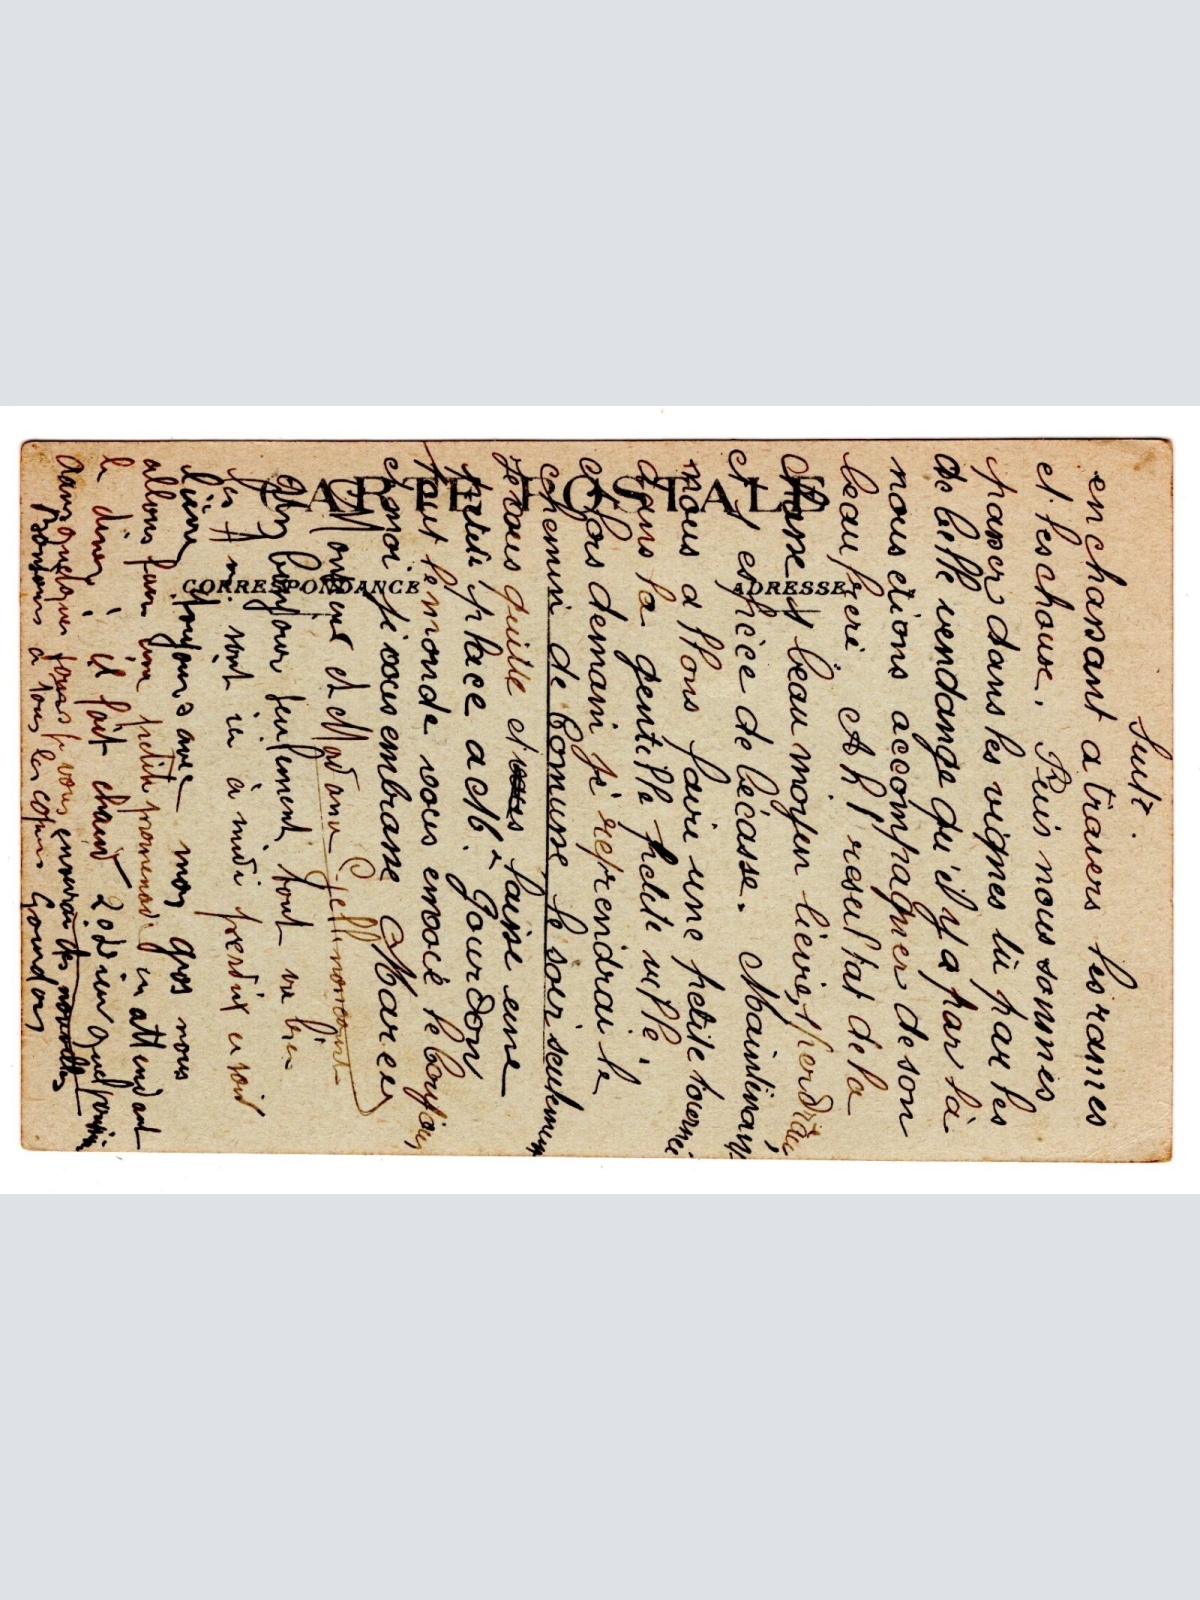 CARTE POSTALE
CORRESPONDANCE
ADRESSE
Suite.
en chassant a travers les rames
et les chouse. Puis nous sommes
passer dans les vignes lü par les
de belle vendange qu'il y a par là
nous étions accompagner de son
beau frere Ah! resultat de la
chasse 1 beau moyen lievre, 1 perdrau
et 1 espèce de bécasse. Maintenant
nous allons faire une petite tourné
dans la gentille petite ville.
alors demain je reprendrai le
chemin de le soir seulement
Je vous quitte et laisse une
petite place a Mr Gourdon
tout le monde vous envoie le bonjour
et moi je vous embrasse Marcel
Monsieur et Madame
bonjour seulement tout va bien
sont ici à midi perdrix ce soir
lièvre, toujours avec mon gros nous
allons faire une petite promenade en attendant
le diner, il fait chaud 20d
dans quelques jours je vous enverrai des nouvelles
Bonjours à tous les copins Gourdon